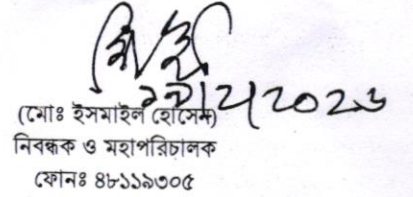 ২০২৩
(মোঃ ইসমাইল হোসেন)
নিবন্ধক ও মহাপরিচালক
ফোনঃ ৪৮১১৯৩০৫